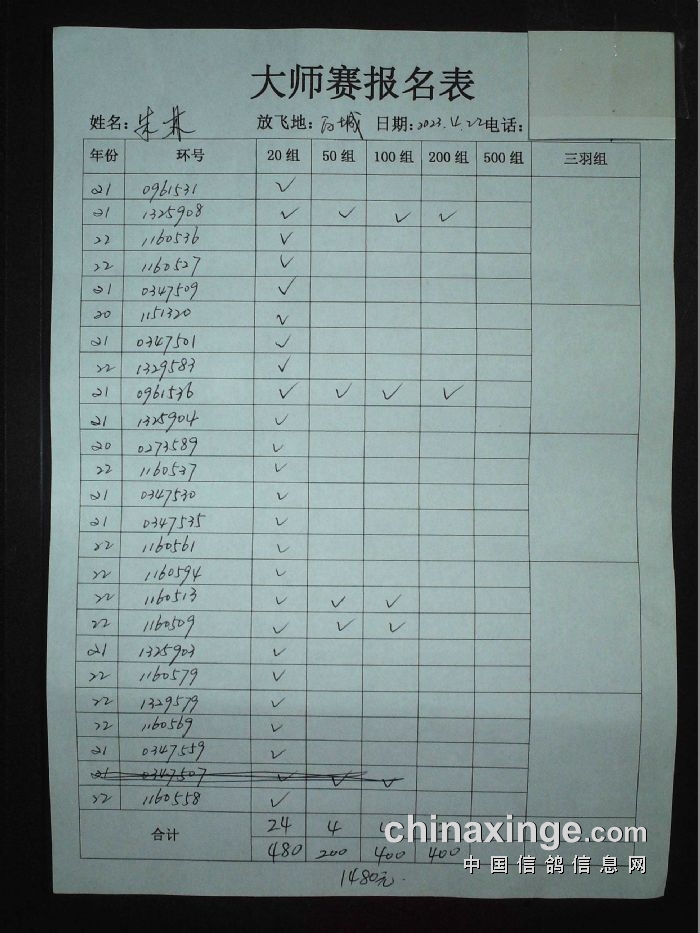 大师赛报名表
姓名: 朱林 放飞地: 白城 日期: 2023.4.22 电话:
年份 环号 20 组 50 组 100 组 200 组 500 组 三羽组
21 0961531 ✓
21 1325908 ✓ ✓ ✓ ✓
22 1160536 ✓
22 1160527 ✓
21 0347509 ✓
20 1151320 ✓
21 0347501 ✓
22 1329583 ✓
21 0961536 ✓ ✓ ✓ ✓
21 1325904 ✓
20 0273589 ✓
22 1160537 ✓
21 0347530 ✓
21 0347535 ✓
22 1160561 ✓
22 1160594 ✓
22 1160513 ✓ ✓ ✓
22 1160509 ✓ ✓ ✓
21 1325903 ✓
22 1160579 ✓
22 1329579 ✓
22 1160569 ✓
21 0347559 ✓
21 0347507 ✓ ✓ ✓
22 1160558 ✓
合计 24 4
480 200 400 400
1480元.
chinaxinge.com
中国信鸽信息网